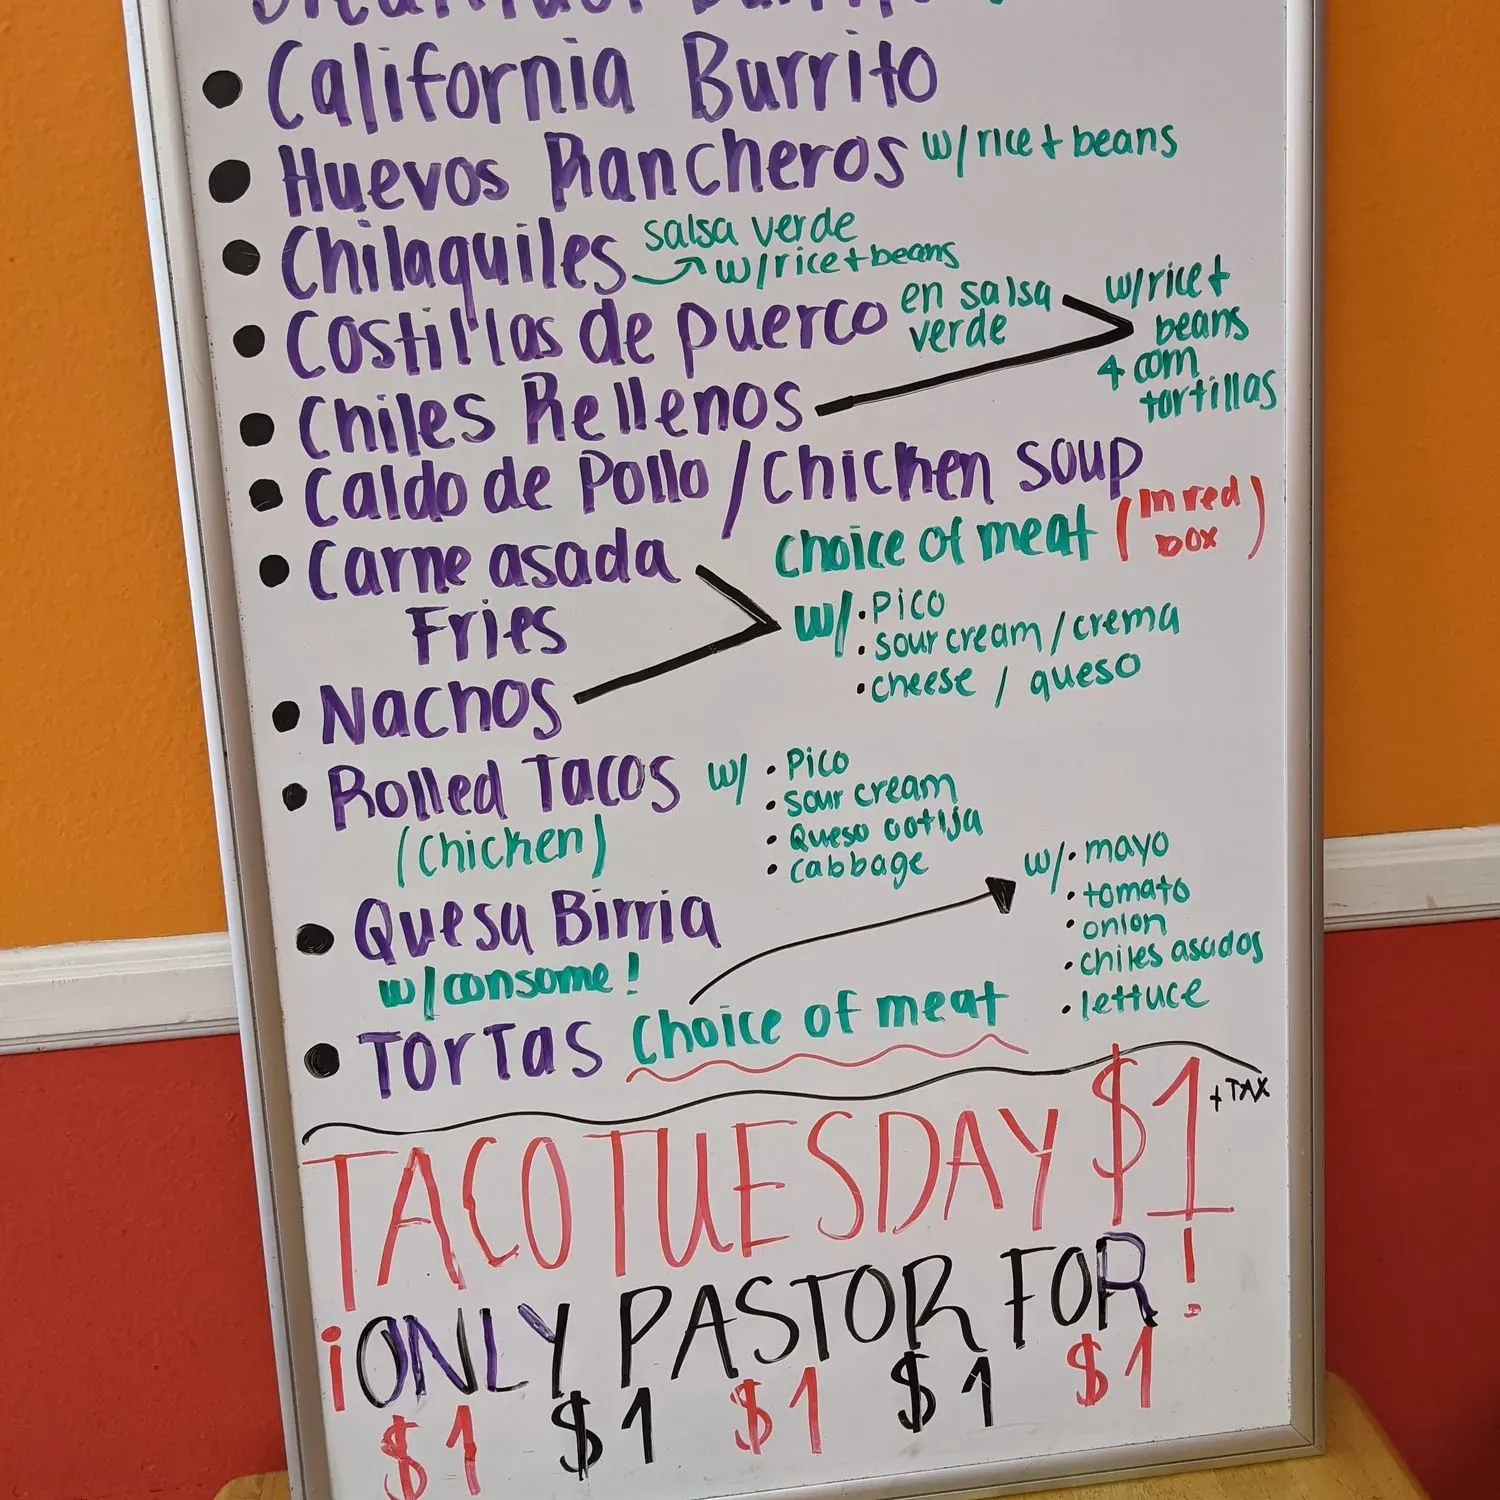 Breakfast Burrito
• California Burrito
• Huevos Rancheros w/rice + beans
• Chilaquiles salsa verde
w/rice + beans
• Costillas de puerco en salsa verde
• Chiles Rellenos
w/rice +
beans
4 corn
tortillas
• Caldo de Pollo / Chicken soup
• Carne asada
Fries
• Nachos
choice of meat (in red box)
w/ • Pico
• sour cream / crema
• cheese / queso
• Rolled Tacos
(Chicken)
w/ • Pico
• sour cream
• Queso cotija
• cabbage
• Quesa Birria
w/consome!
• Tortas Choice of meat
w/ • mayo
• tomato
• onion
• chiles asados
• lettuce
TACO TUESDAY $1 + TAX
¡ONLY PASTOR FOR!
$1 $1 $1 $1 $1